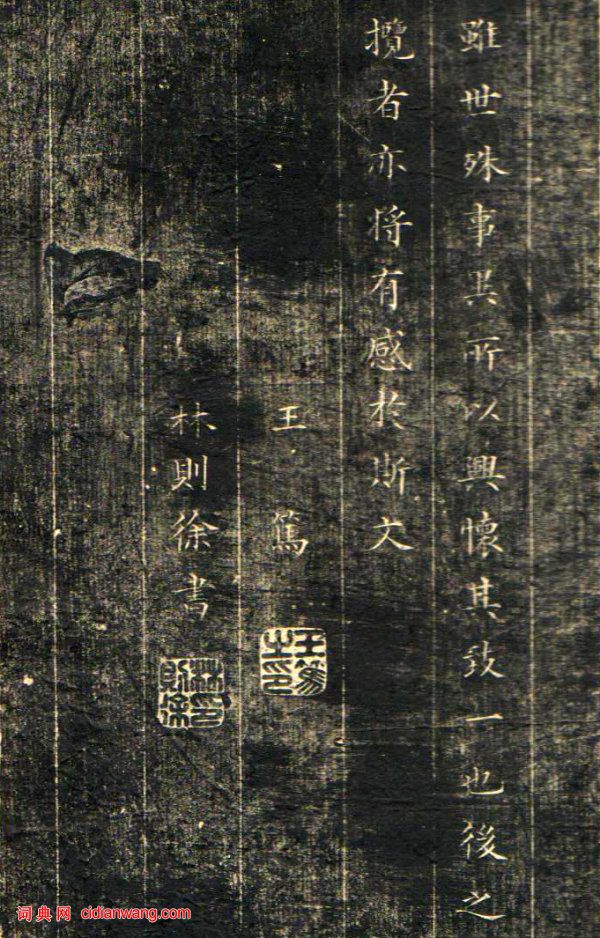 雖世殊事異所以興懷其致一也後之
攬者亦将有感於斯文
王篤
王篤之印
林則徐書
林則徐印
词典网 cidianwang.com